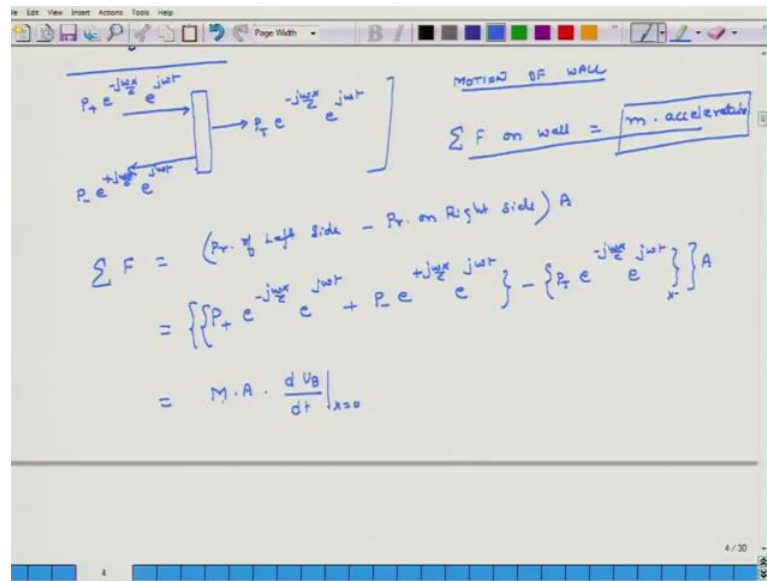 File Edit View Insert Actions Tools Help
Page Width
B I
P₊ e^{-jωx/c} e^{jωt}
P_T e^{-jωx/c} e^{jωt}
P₋ e^{+jωx/c} e^{jωt}
MOTION OF WALL
Σ F on wall = m. acceleration
Σ F = (Pr. of Left Side - Pr. on Right side) A
= {{P₊ e^{-jωx/c} e^{jωt} + P₋ e^{+jωx/c} e^{jωt}} - {P_T e^{-jωx/c} e^{jωt}}} A
= M.A. dU_B/dt |_{x=0}
4 / 30
4